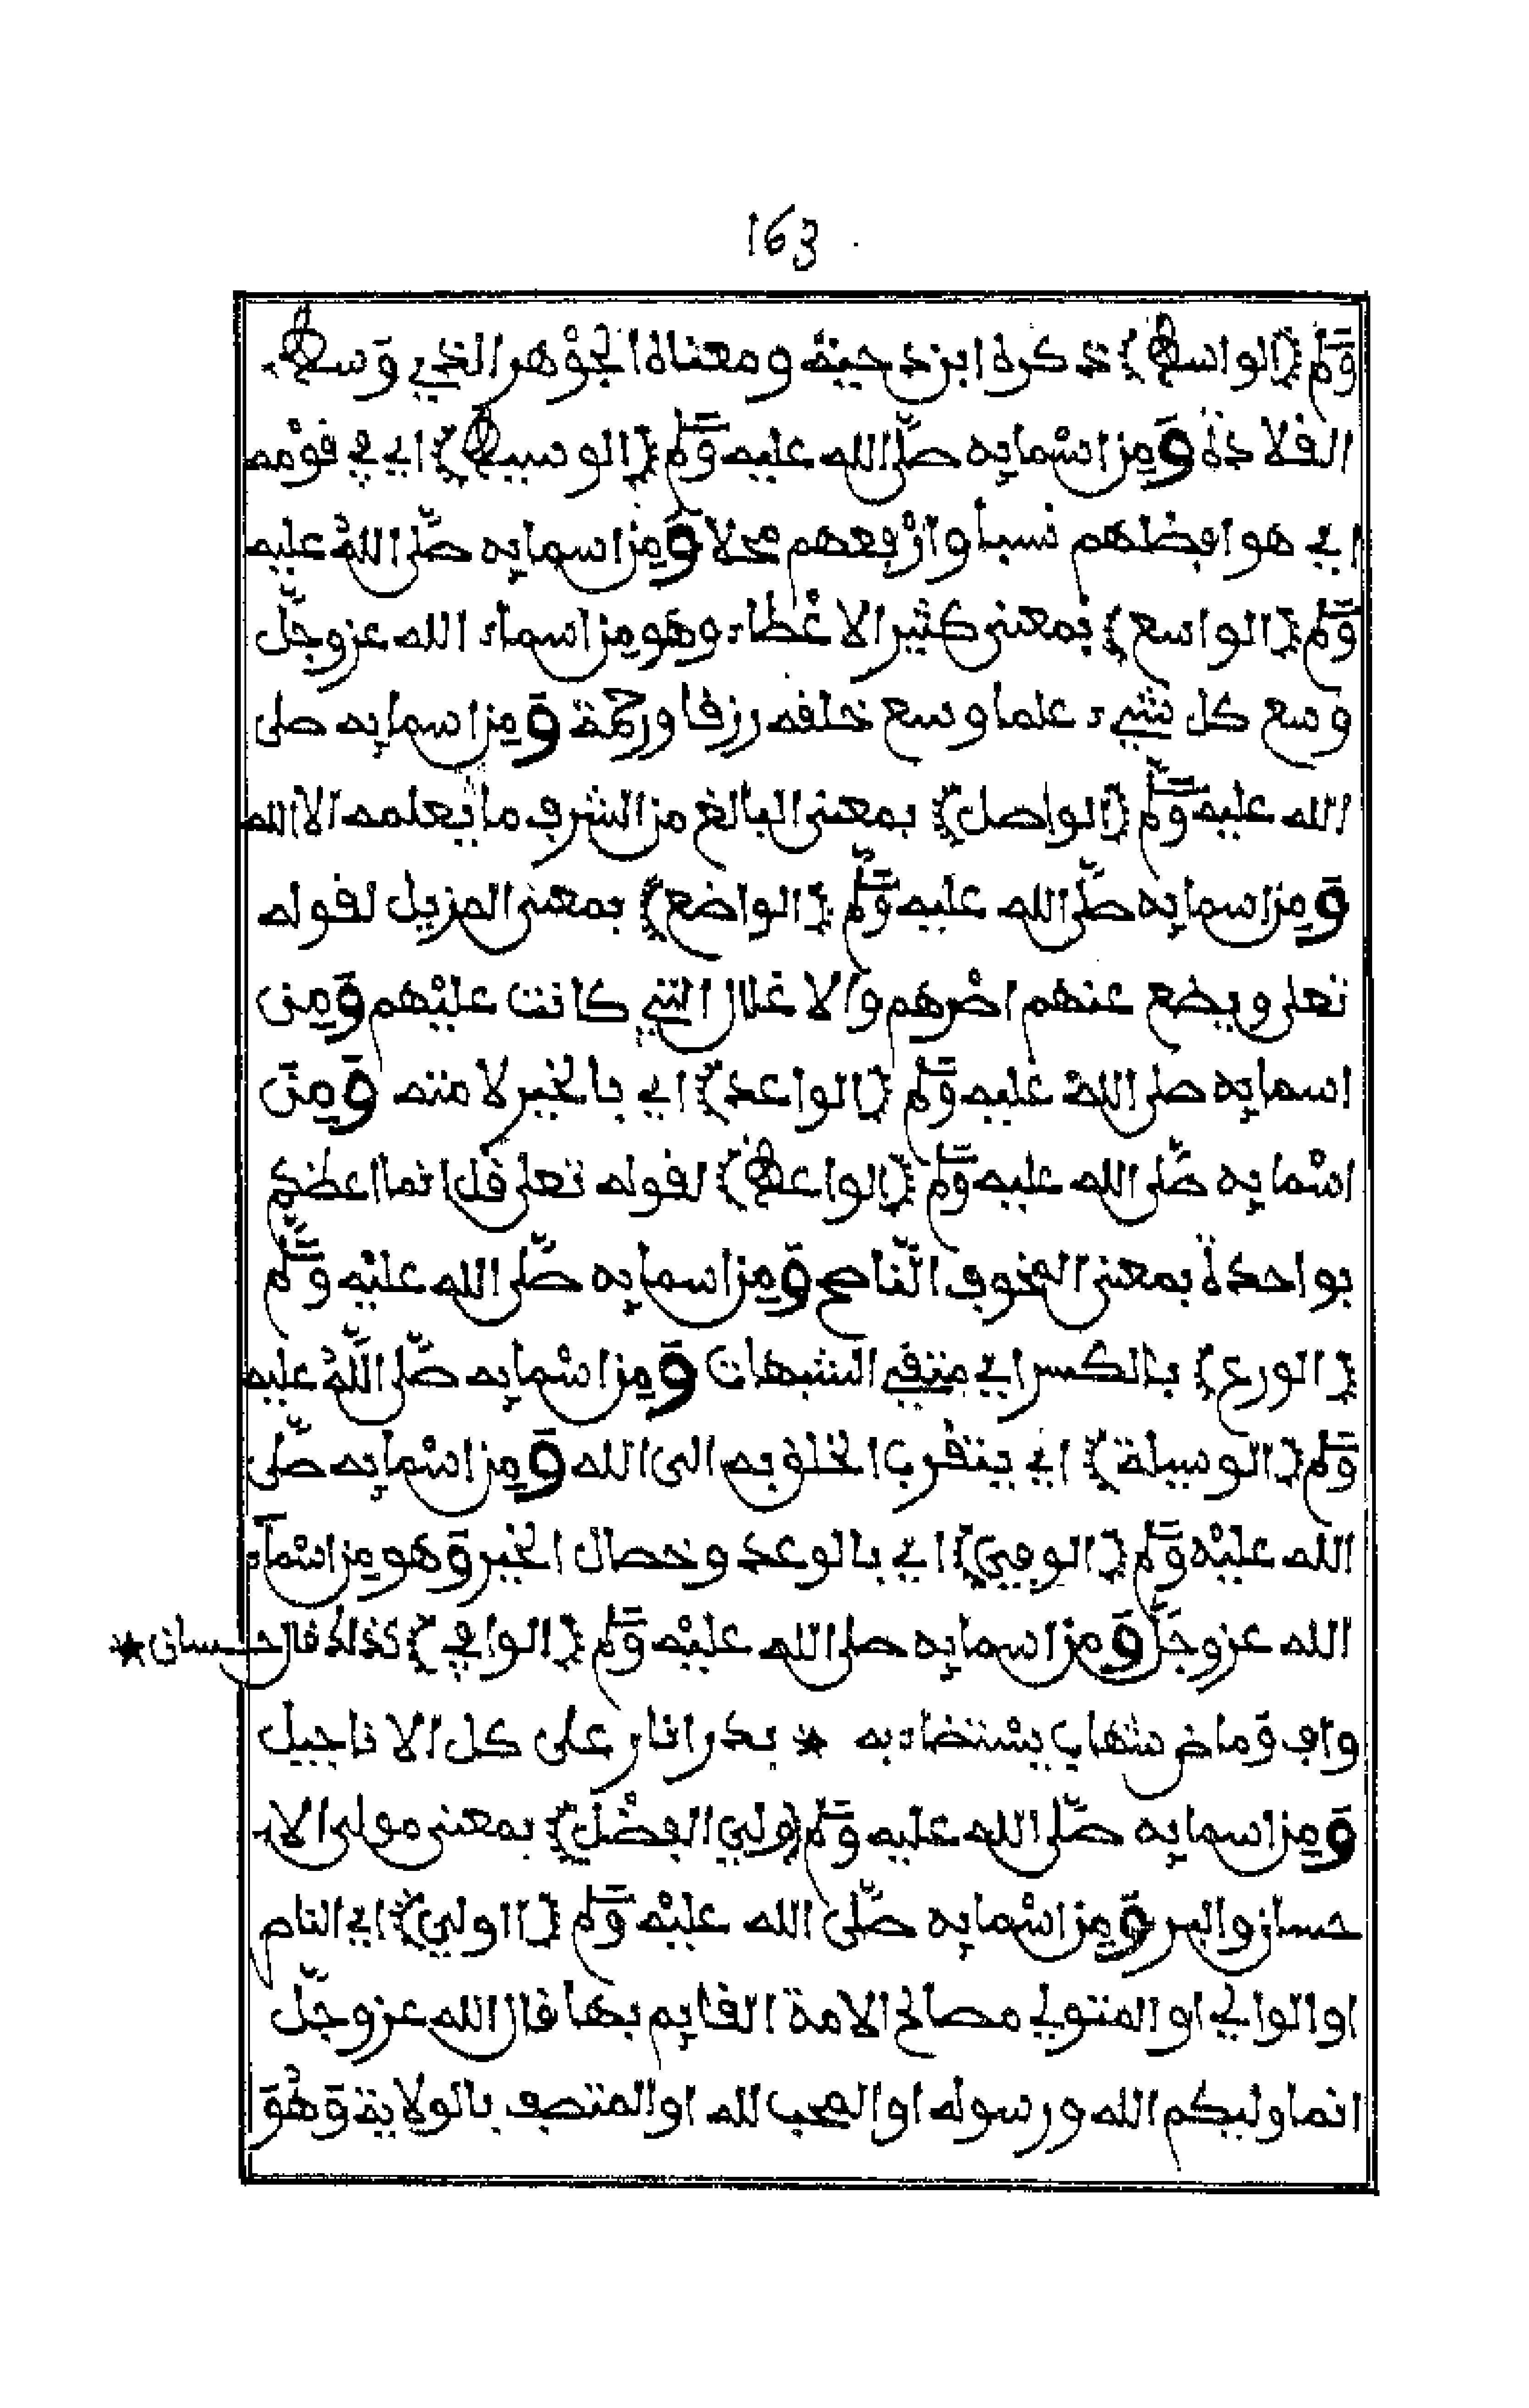 163
وسلم (الواسط) ذكره ابن دحية ومعناه الجوْهر الذي وَسط
القلادة وَمِن اسْمايِه صلّى الله عليه وسلم (الوسيط) اي في قوْمه
اي هو افضلهم نسبا وارْفعهم محلا وَمِن اسمايِه صلّى اللهُ عليه
وسلم (الواسع) بمعنى كثير الاعْطاء وهو مِن اسماء الله عزوجلّ
وَسع كل شيء علما وسع خلقه رزقا ورحمة وَمِن اسمايِه صلى
الله عليه وسلم (الواصل) بمعنى البالغ من الشرف ما يعلمه الا الله
وَمِن اسمايِه صلّى الله عليه وسلم (الواضع) بمعنى المزيل لقوله
تعلى ويضع عنهم اصْرهم والاغلال التي كانت عليْهم وَمِن
اسمايِه صلى اللهُ عليه وسلم (الواعد) اي بالخير لامته وَمِنَ
اسْمايِه صلّى الله عليه وسلم (الواعظ) لقوله تعلى قل انما اعظكم
بواحدة بمعنى المخوف الناصح وَمِن اسمايِه صلّى الله عليْه وسلم
(الورع) بالكسر اي متقي الشبهات وَمِن اسْمايِه صلّى اللّهُ عليه
وسلم (الوسيلة) اي يتقرب الخلق به الى الله وَمِن اسْمايِه صلّى
الله عليْه وسلم (الوفي) اي بالوعد وخصال الخير وَهو مِن اسْماء
الله عزوجلّ وَمِن اسمايِه صلى الله عليْه وسلم (الوافي) كذلك قال حسان ★
واف وماض شهاب يسْتضاء به ★ بدر انار على كل الاناجيل
وَمِن اسمايِه صلّى الله عليه وسلم (ولي الفضْل) بمعنى مولى الا
حسان والبر وَمِن اسْمايِه صلّى الله عليْه وسلم (الولي) اي الناصر
او الوالي او المتولي مصالح الامة القايم بها قال الله عزوجلّ
انما وليكم الله ورسوله او المحب لله او المتصف بالولاية وَهُوَ